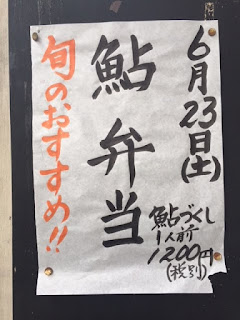 6月23日(土)
鮎づくし
1人前
1200円
(税別)
鮎弁当
旬のおすすめ!!